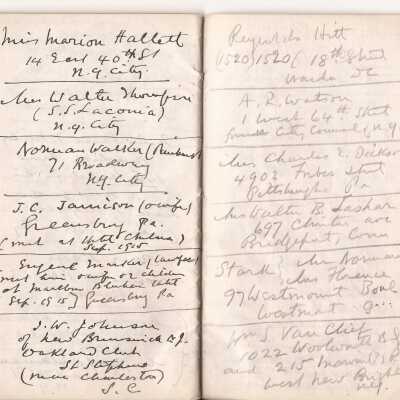 Miss Marion Hallett
14 East 40th St
N.Y. City
Mrs Walter
(S.S. Laconia)
N.Y. City
Norman Walker
71 Broadway
N.Y. City
J.C. Jamison (& wife)
Greensburg Pa.
(met at Hotel Chelsea)
Sept. 1915
Eugene
met him & wife & children
at Marlboro Blenheim Hotel
Sep. 1915) Greensburg Pa
J.W. Johnson
of New Brunswick N.J.
Oakland Club
St Stephens
(near Charleston)
S.C
Reynolds Hitt
1520 (18th Street
Wash DC
A.R. Watson
1 West 64th Street
City Council, N.Y
Mrs Charles E.
4903 Forbes Street
Pittsburgh Pa
Mrs Walter B. Lashar
697 Clinton ave
Bridgeport, Conn
Stark { Mr Norman
Miss Florence
97 Westmount
Westmount
Wm S. Van Clief
1022 Woolworth B
and 215
West New Brighton
N.Y.